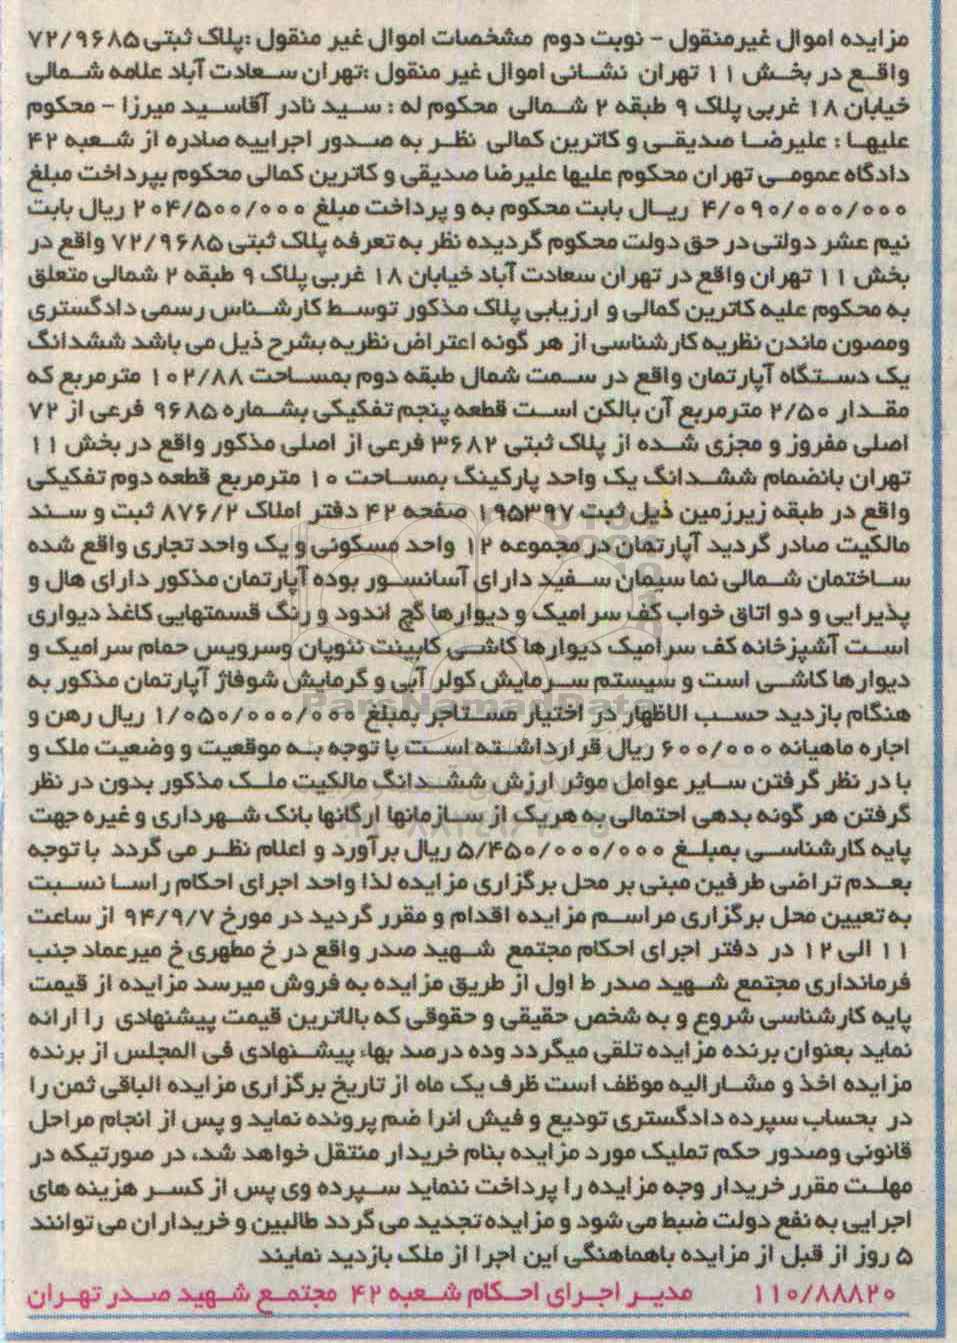 مزایده اموال غیرمنقول - نوبت دوم مشخصات اموال غیر منقول :پلاک ثبتی ۷۲/۹۶۸۵
واقع در بخش ۱۱ تهران نشانی اموال غیر منقول :تهران سعادت آباد علامه شمالی
خیابان ۱۸ غربی پلاک ۹ طبقه ۲ شمالی محکوم له : سید نادر آقاسید میرزا - محکوم
علیها : علیرضا صدیقی و کاترین کمالی نظر به صدور اجراییه صادره از شعبه ۴۲
دادگاه عمومی تهران محکوم علیها علیرضا صدیقی و کاترین کمالی محکوم بپرداخت مبلغ
۴/۰۹۰/۰۰۰/۰۰۰ ریال بابت محکوم به و پرداخت مبلغ ۲۰۴/۵۰۰/۰۰۰ ریال بابت
نیم عشر دولتی در حق دولت محکوم گردیده نظر به تعرفه پلاک ثبتی ۷۲/۹۶۸۵ واقع در
بخش ۱۱ تهران واقع در تهران سعادت آباد خیابان ۱۸ غربی پلاک ۹ طبقه ۲ شمالی متعلق
به محکوم علیه کاترین کمالی و ارزیابی پلاک مذکور توسط کارشناس رسمی دادگستری
ومصون ماندن نظریه کارشناسی از هر گونه اعتراض نظریه بشرح ذیل می باشد ششدانگ
یک دستگاه آپارتمان واقع در سمت شمال طبقه دوم بمساحت ۱۰۲/۸۸ مترمربع که
مقدار ۲/۵۰ مترمربع آن بالکن است قطعه پنجم تفکیکی بشماره ۹۶۸۵ فرعی از ۷۲
اصلی مفروز و مجزی شده از پلاک ثبتی ۳۶۸۲ فرعی از اصلی مذکور واقع در بخش ۱۱
تهران بانضمام ششدانگ یک واحد پارکینگ بمساحت ۱۰ مترمربع قطعه دوم تفکیکی
واقع در طبقه زیرزمین ذیل ثبت ۱۹۵۳۹۷ صفحه ۴۲ دفتر املاک ۸۷۶/۲ ثبت و سند
مالکیت صادر گردید آپارتمان در مجموعه ۱۲ واحد مسکونی و یک واحد تجاری واقع شده
ساختمان شمالی نما سیمان سفید دارای آسانسور بوده آپارتمان مذکور دارای هال و
پذیرایی و دو اتاق خواب کف سرامیک و دیوارها گچ اندود و رنگ قسمتهایی کاغذ دیواری
است آشپزخانه کف سرامیک دیوارها کاشی کابینت نئوپان وسرویس حمام سرامیک و
دیوارها کاشی است و سیستم سرمایش کولر آبی و گرمایش شوفاژ آپارتمان مذکور به
هنگام بازدید حسب الاظهار در اختیار مستاجر بمبلغ ۱/۰۵۰/۰۰۰/۰۰۰ ریال رهن و
اجاره ماهیانه ۶۰۰/۰۰۰ ریال قرارداشته است با توجه به موقعیت و وضعیت ملک و
با در نظر گرفتن سایر عوامل موثر ارزش ششدانگ مالکیت ملک مذکور بدون در نظر
گرفتن هر گونه بدهی احتمالی به هریک از سازمانها ارگانها بانک شهرداری و غیره جهت
پایه کارشناسی بمبلغ ۵/۴۵۰/۰۰۰/۰۰۰ ریال برآورد و اعلام نظر می گردد با توجه
بعدم تراضی طرفین مبنی بر محل برگزاری مزایده لذا واحد اجرای احکام راسا نسبت
به تعیین محل برگزاری مراسم مزایده اقدام و مقرر گردید در مورخ ۹۴/۹/۷ از ساعت
۱۱ الی ۱۲ در دفتر اجرای احکام مجتمع شهید صدر واقع در خ مطهری خ میرعماد جنب
فرمانداری مجتمع شهید صدر ط اول از طریق مزایده به فروش میرسد مزایده از قیمت
پایه کارشناسی شروع و به شخص حقیقی و حقوقی که بالاترین قیمت پیشنهادی را ارائه
نماید بعنوان برنده مزایده تلقی میگردد وده درصد بهاء پیشنهادی فی المجلس از برنده
مزایده اخذ و مشارالیه موظف است ظرف یک ماه از تاریخ برگزاری مزایده الباقی ثمن را
در بحساب سپرده دادگستری تودیع و فیش انرا ضم پرونده نماید و پس از انجام مراحل
قانونی وصدور حکم تملیک مورد مزایده بنام خریدار منتقل خواهد شد، در صورتیکه در
مهلت مقرر خریدار وجه مزایده را پرداخت ننماید سپرده وی پس از کسر هزینه های
اجرایی به نفع دولت ضبط می شود و مزایده تجدید می گردد طالبین و خریداران می توانند
۵ روز از قبل از مزایده باهماهنگی این اجرا از ملک بازدید نمایند
۱۱۰/۸۸۸۲۰ مدیر اجرای احکام شعبه ۴۲ مجتمع شهید صدر تهران